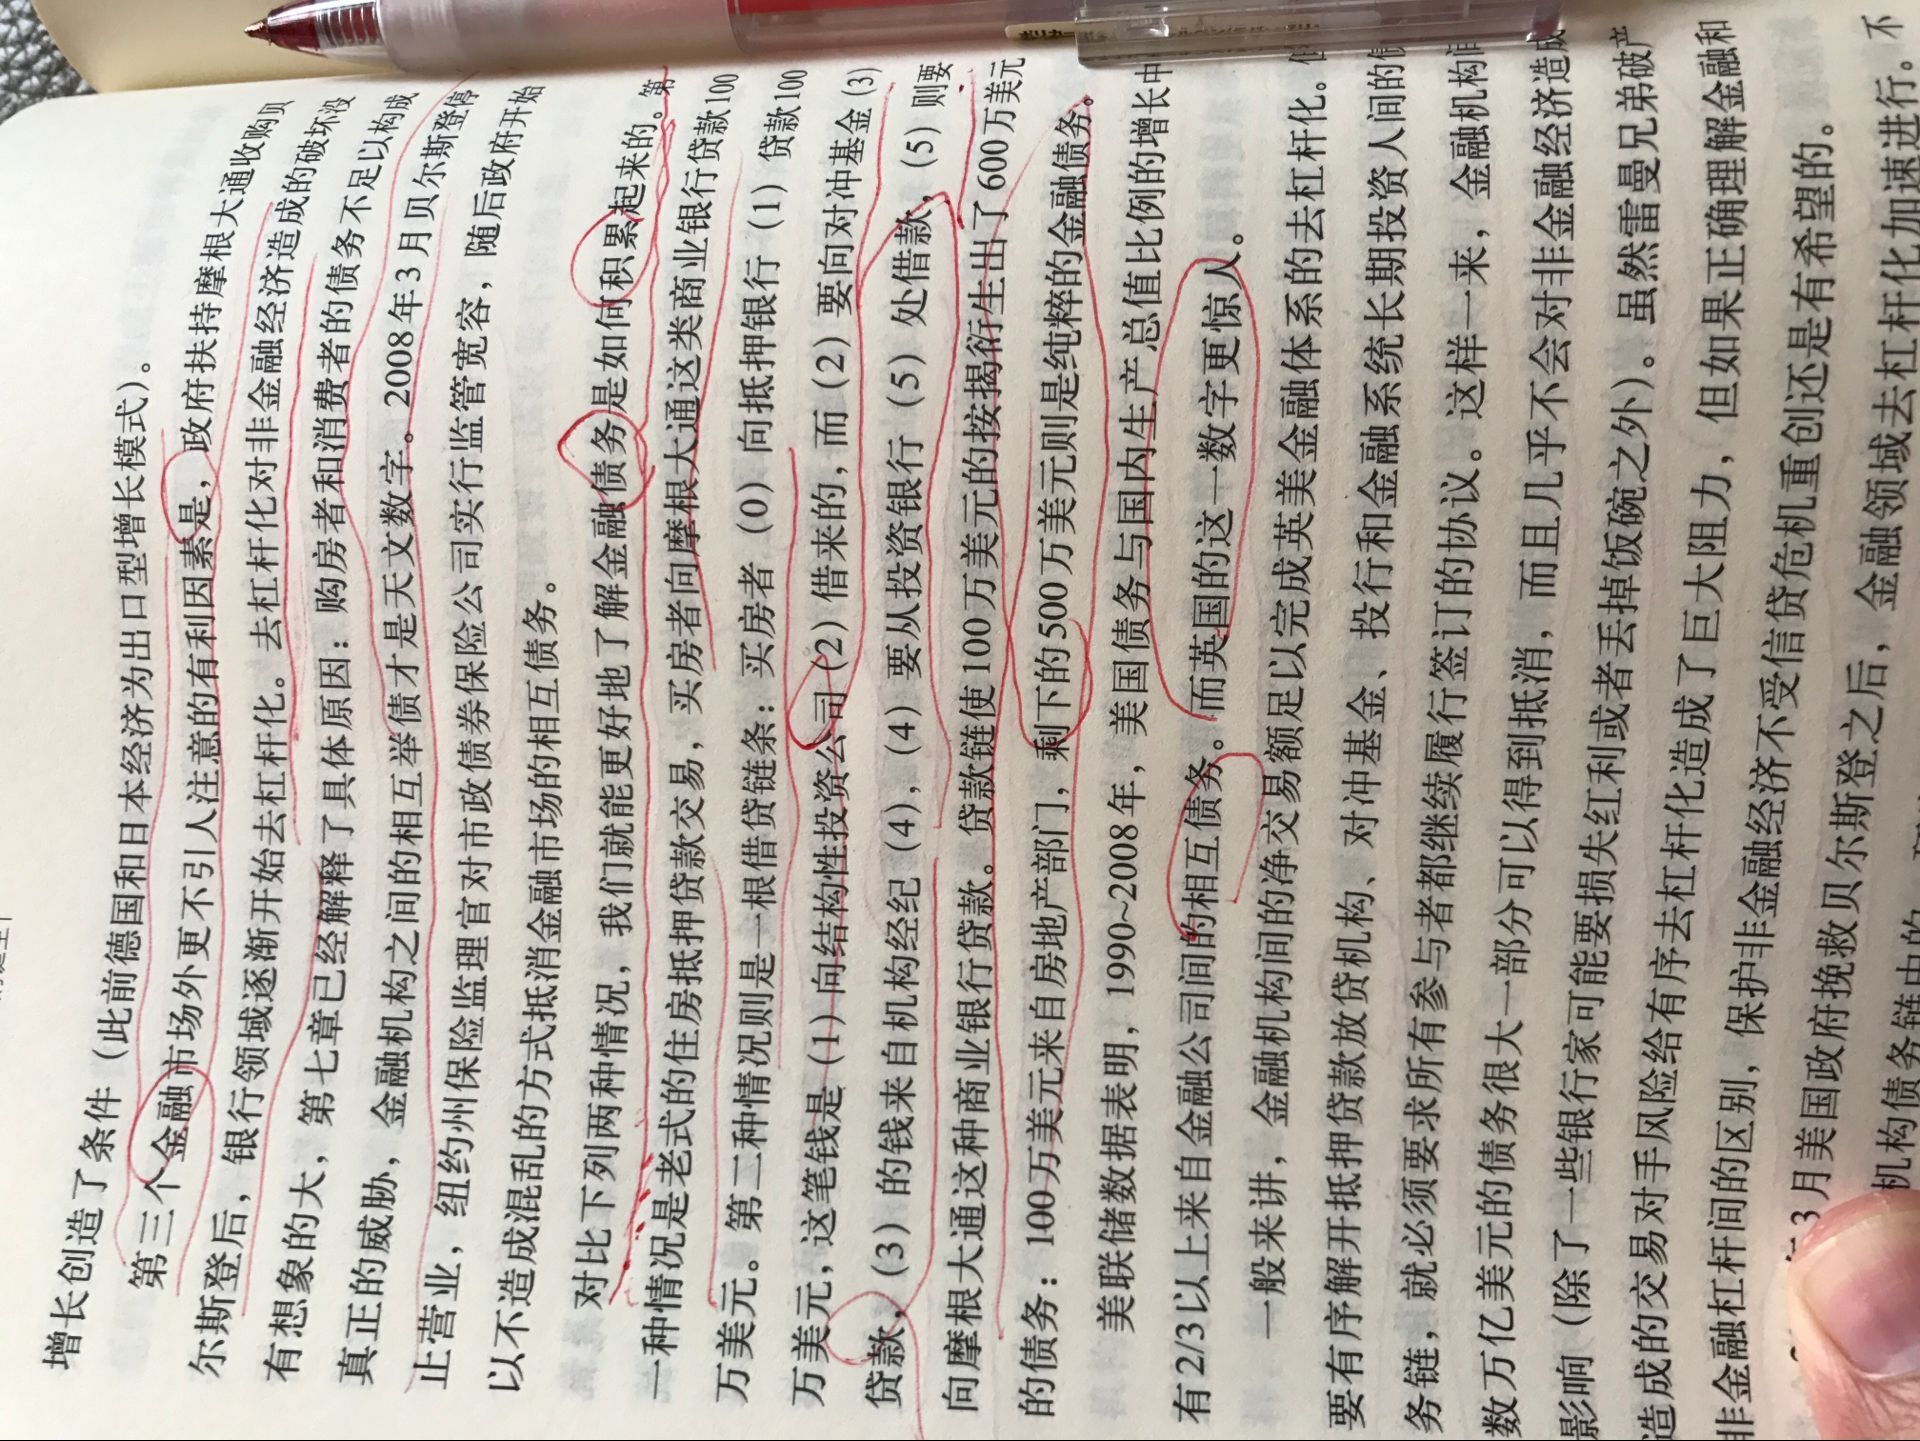 增长创造了条件（此前德国和日本经济为出口型增长模式）。
第三个金融市场外更不引人注意的有利因素是，政府扶持摩根大通收购贝
尔斯登后，银行领域逐渐开始去杠杆化。去杠杆化对非金融经济造成的破坏没
有想象的大，第七章已经解释了具体原因：购房者和消费者的债务不足以构成
真正的威胁，金融机构之间的相互举债才是天文数字。2008年3月贝尔斯登停
止营业，纽约州保险监理官对市政债券保险公司实行监管宽容，随后政府开始
以不造成混乱的方式抵消金融市场的相互债务。
对比下列两种情况，我们就能更好地了解金融债务是如何积累起来的。第
一种情况是老式的住房抵押贷款交易，买房者向摩根大通这类商业银行贷款100
万美元。第二种情况则是一根借贷链条：买房者（0）向抵押银行（1）贷款100
万美元，这笔钱是（1）向结构性投资公司（2）借来的，而（2）要向对冲基金（3）
贷款，（3）的钱来自机构经纪（4），（4）要从投资银行（5）处借款，（5）则要
向摩根大通这种商业银行贷款。贷款链使100万美元的按揭衍生出了600万美元
的债务：100万美元来自房地产部门，剩下的500万美元则是纯粹的金融债务。
美联储数据表明，1990~2008年，美国债务与国内生产总值比例的增长中
有2/3以上来自金融公司间的相互债务。而英国的这一数字更惊人。
一般来讲，金融机构间的净交易额足以完成英美金融体系的去杠杆化。
要有序解开抵押贷款放贷机构、对冲基金、投行和金融系统长期投资人间的债
务链，就必须要求所有参与者都继续履行签订的协议。这样一来，金融机构间
数万亿美元的债务很大一部分可以得到抵消，而且几乎不会对非金融经济造成
影响（除了一些银行家可能要损失红利或者丢掉饭碗之外）。虽然雷曼兄弟破产
造成的交易对手风险给有序去杠杆化造成了巨大阻力，但如果正确理解金融和
非金融杠杆间的区别，保护非金融经济不受信贷危机重创还是有希望的。
3月美国政府挽救贝尔斯登之后，金融领域去杠杆化加速进行。不
机构债务链中的